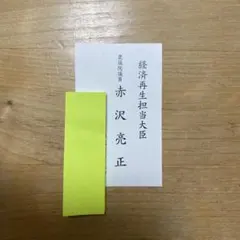 経済再生担当大臣
衆議院議員
赤沢亮正